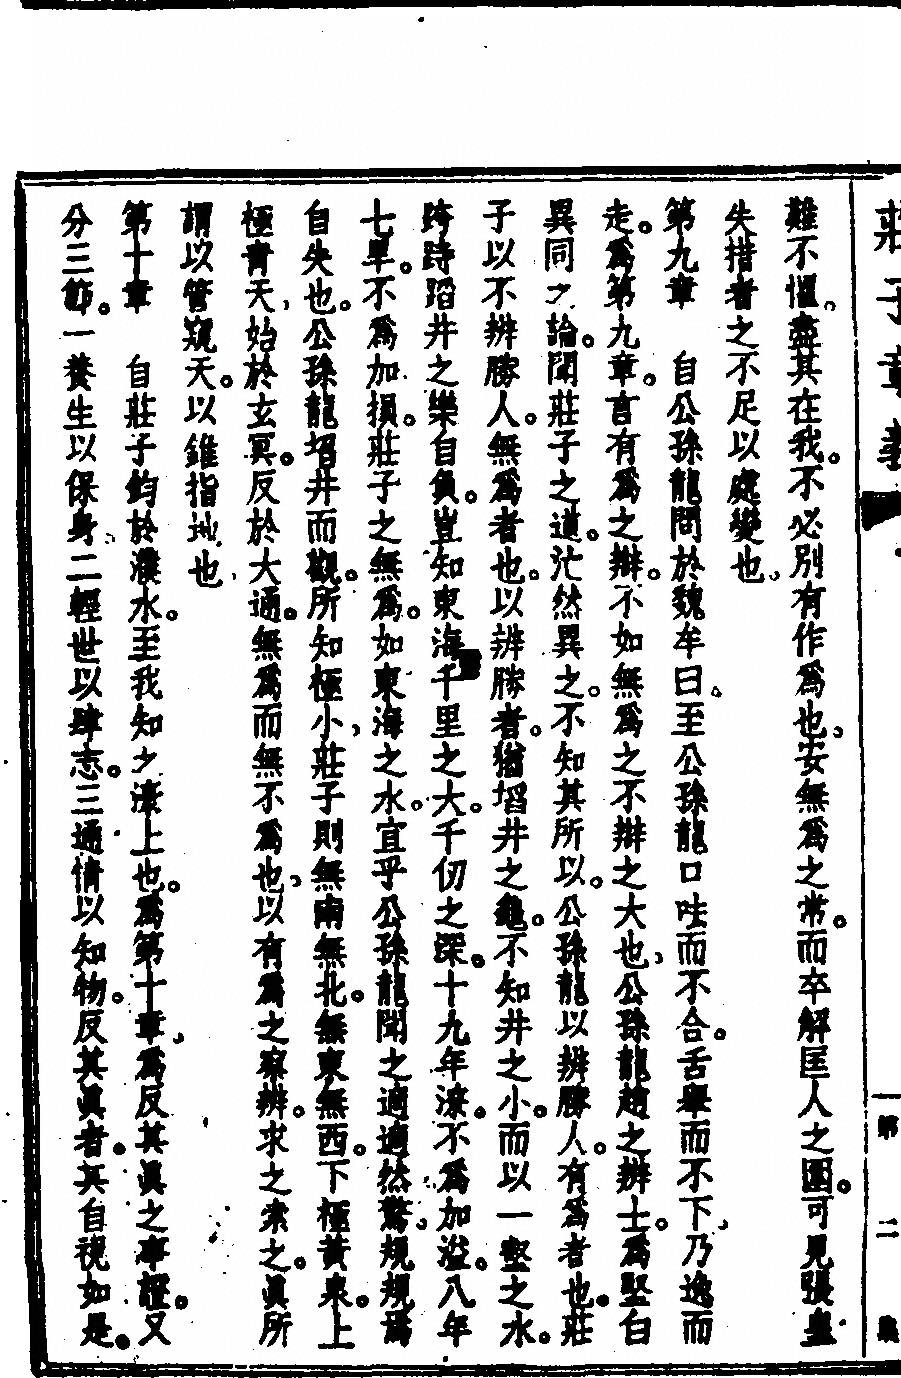 莊子章義
第二
難不懼、盡其在我。不必別有作爲也、安無爲之常。而卒解匡人之圍。可見張皇
失措者之不足以處變也、
第九章　自公孫龍問於魏牟曰。至公孫龍口呿而不合。舌舉而不下、乃逸而
走。爲第九章。言有爲之辯。不如無爲之不辯之大也、公孫龍趙之辨士。爲堅白
異同之論。聞莊子之道。茫然異之。不知其所以。公孫龍以辨勝人。有爲者也。莊
子以不辨勝人。無爲者也。以辨勝者。猶埳井之龜。不知井之小。而以一壑之水。
跨跱蹈井之樂自負。豈知東海千里之大。千仞之深。十九年潦。不爲加溢。八年
七旱。不爲加損。莊子之無爲。如東海之水。宜乎公孫龍聞之適適然驚、規規焉
自失也。公孫龍埳井而觀。所知極小、莊子則無南無北。無東無西。下極黃泉。上
極青天、始於玄冥。反於大通。無爲而無不爲也、以有爲之察辨。求之索之。眞所
謂以管窺天。以錐指地也、
第十章　自莊子釣於濮水。至我知之濠上也。爲第十章、爲反其眞之事證。又
分三節。一養生以保身、二輕世以肆志。三通情以知物。反其眞者。其自視如是。